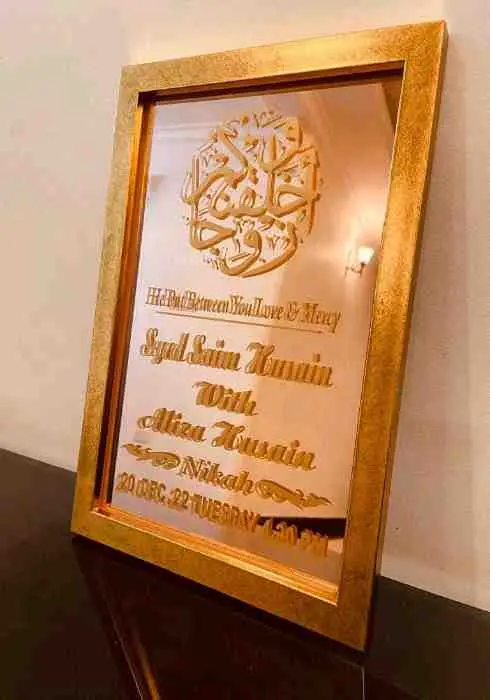 وخلقناكم أزواجا
He Put Between You Love & Mercy
Syed Saim Husain
With
Aliza Husain
Nikah
20 DEC. 22 TUESDAY 4:30 PM